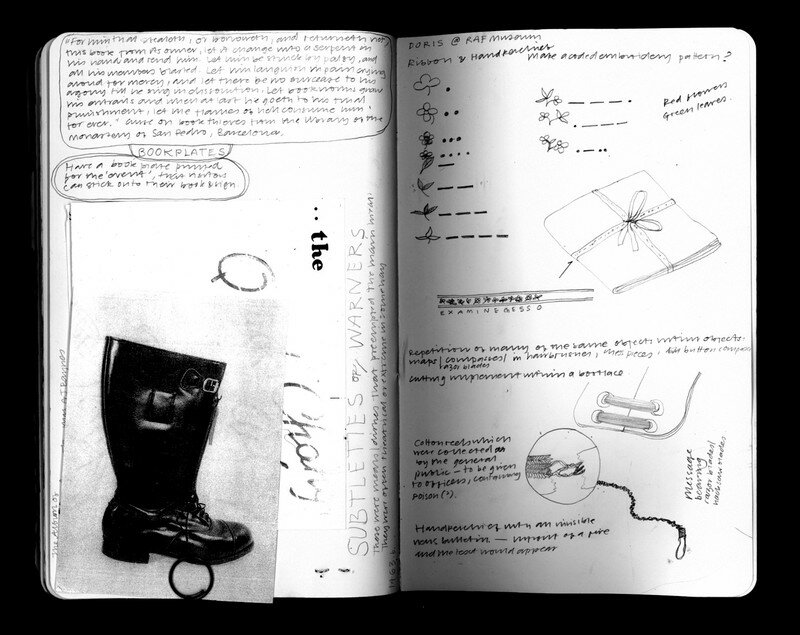 "For him that stealeth, or borroweth, and returneth not,
this book from its owner, let it change into a serpent in
his hand and rend him. Let him be struck by palsy, and
all his members blasted. Let him languish in pain crying
aloud for mercy, and let there be no surcease to his
agony till he sing in dissolution. Let bookworms gnaw
his entrails and when at last he goeth to his final
punishment, let the flames of hell consume him
for ever." Curse on book thieves from the library of the
monastery of San Pedro, Barcelona.
BOOKPLATES
Have a book plate printed
for the 'event', that
can stick onto their book
.. the
SUBTLETIES of WARNERS
These were mean dishes that preempted the main meal.
They were often theatrical or extreme in some way
DORIS @ RAF MUSEUM
Ribbon & Handkerchiefs
Make a coded embroidery pattern?
Red flowers
Green leaves.
EXAMINE GESSO
Repetition of many of the same objects within objects
maps/compasses/ in hairbrushes, chess pieces, button
razor blades
Cutting implement within a bootlace.
Cotton reels which
were collected
by the general
public – to be given
to officers, containing
poison (?).
message
bearing
razor blades/
Handkerchief with an invisible
bulletin — in front of a fire
and the would appear